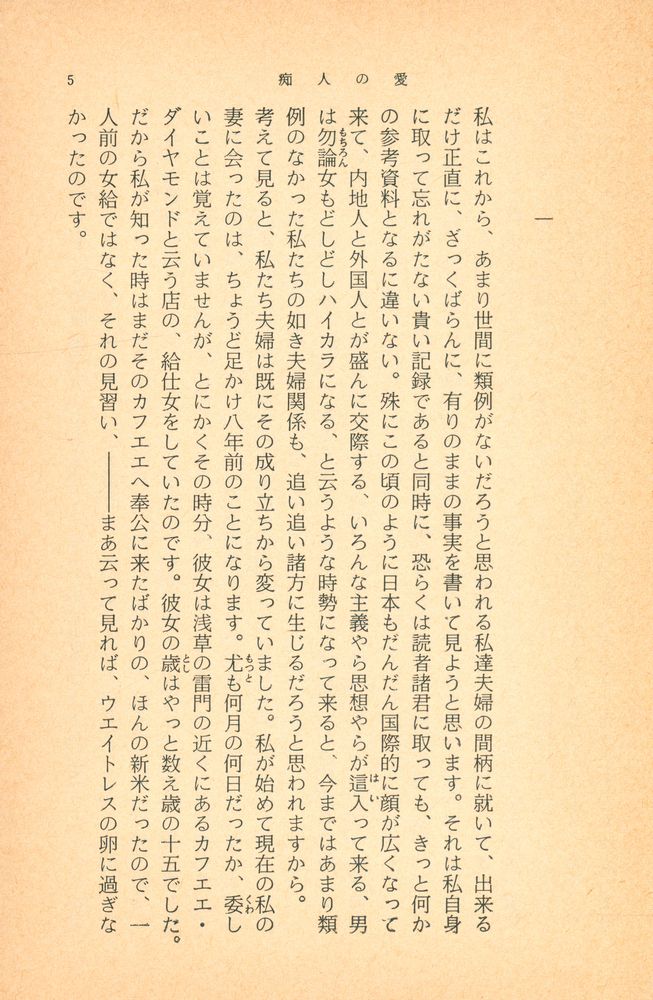 痴人の愛
5
一
私はこれから、あまり世間に類例がないだろうと思われる私達夫婦の間柄に就いて、出来る
だけ正直に、ざっくばらんに、有りのままの事実を書いて見ようと思います。それは私自身
に取って忘れがたない貴い記録であると同時に、恐らくは読者諸君に取っても、きっと何か
の参考資料となるに違いない。殊にこの頃のように日本もだんだん国際的に顔が広くなって
来て、内地人と外国人とが盛んに交際する、いろんな主義やら思想やらが這入って来る、男
は勿論女もどしどしハイカラになる、と云うような時勢になって来ると、今まではあまり類
例のなかった私たちの如き夫婦関係も、追い追い諸方に生じるだろうと思われますから。
考えて見ると、私たち夫婦は既にその成り立ちから変っていました。私が始めて現在の私の
妻に会ったのは、ちょうど足かけ八年前のことになります。尤も何月の何日だったか、委し
いことは覚えていませんが、とにかくその時分、彼女は浅草の雷門の近くにあるカフエエ・
ダイヤモンドと云う店の、給仕女をしていたのです。彼女の歳はやっと数え歳の十五でした。
だから私が知った時はまだそのカフエエへ奉公に来たばかりの、ほんの新米だったので、一
人前の女給ではなく、それの見習い、――まあ云って見れば、ウエイトレスの卵に過ぎな
かったのです。